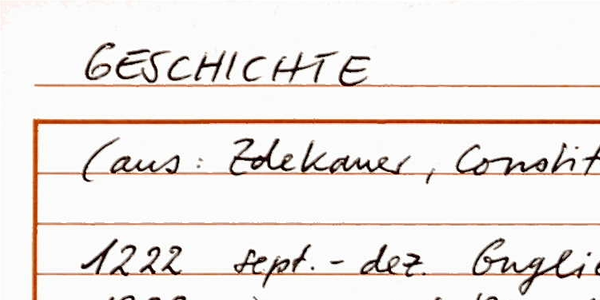 GESCHICHTE
(aus: Zdekauer, Constit
1222 sept.- dez. Guglie